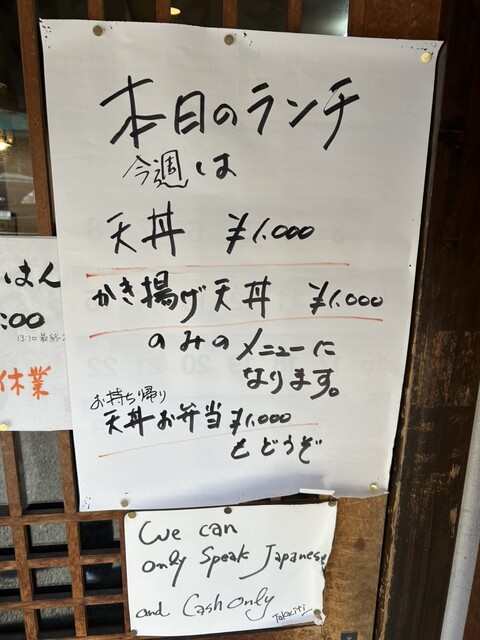 本日のランチ
今週は
天丼 ¥1,000
かき揚げ天丼 ¥1,000
のみの メニューに
なります。
お持ち帰り
天丼お弁当 ¥1,000
もどうぞ
はん
:00
休業
We can
only Speak Japanese
and Cash only